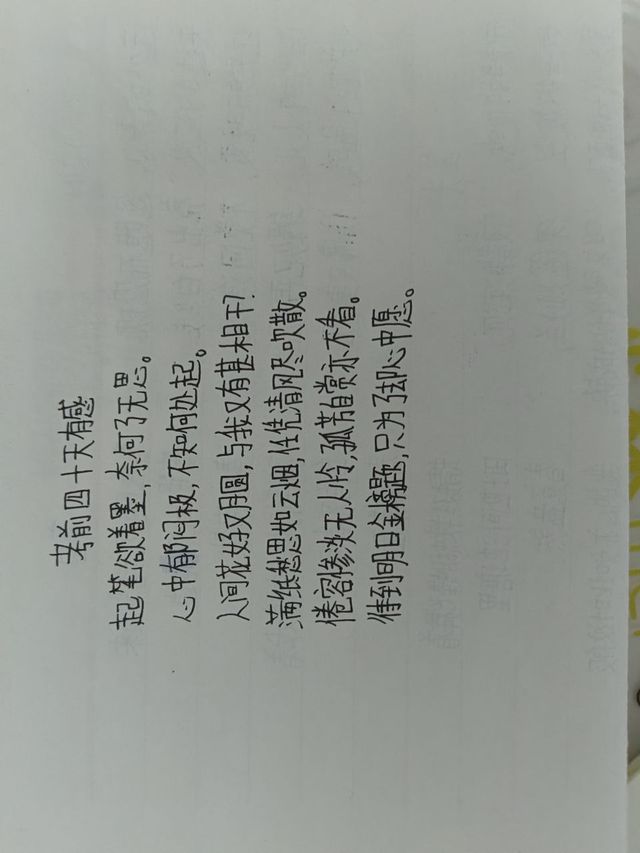 考前四十天有感
起笔欲着墨,奈何了无思。
心中有郁闷极,不知何处起。
人间花好又月圆,与我又有甚相干?
满纸愁思如云烟,任凭清风尽吹散。
倦容惨淡无人怜,孤芳自赏亦不看。
待到明日金榜题,只为了却心中愿。